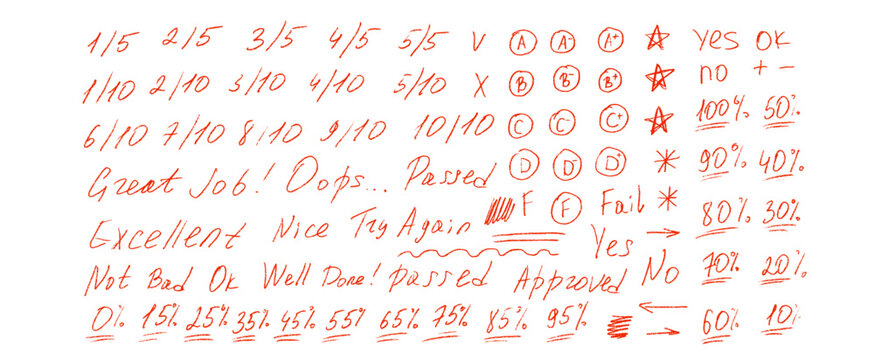 1/5 2/5 3/5 4/5 5/5 V A A- A+ yes ok
1/10 2/10 3/10 4/10 5/10 X B B- B+ no + -
6/10 7/10 8/10 9/10 10/10 C C- C+ 100% 50%
Great Job! Oops... Passed D D- D+ 90% 40%
Excellent Nice Try Again F F Fail 80% 30%
Yes
Not Bad Ok Well Done! passed Approved No 70% 20%
0% 15% 25% 35% 45% 55% 65% 75% 85% 95% 60% 10%